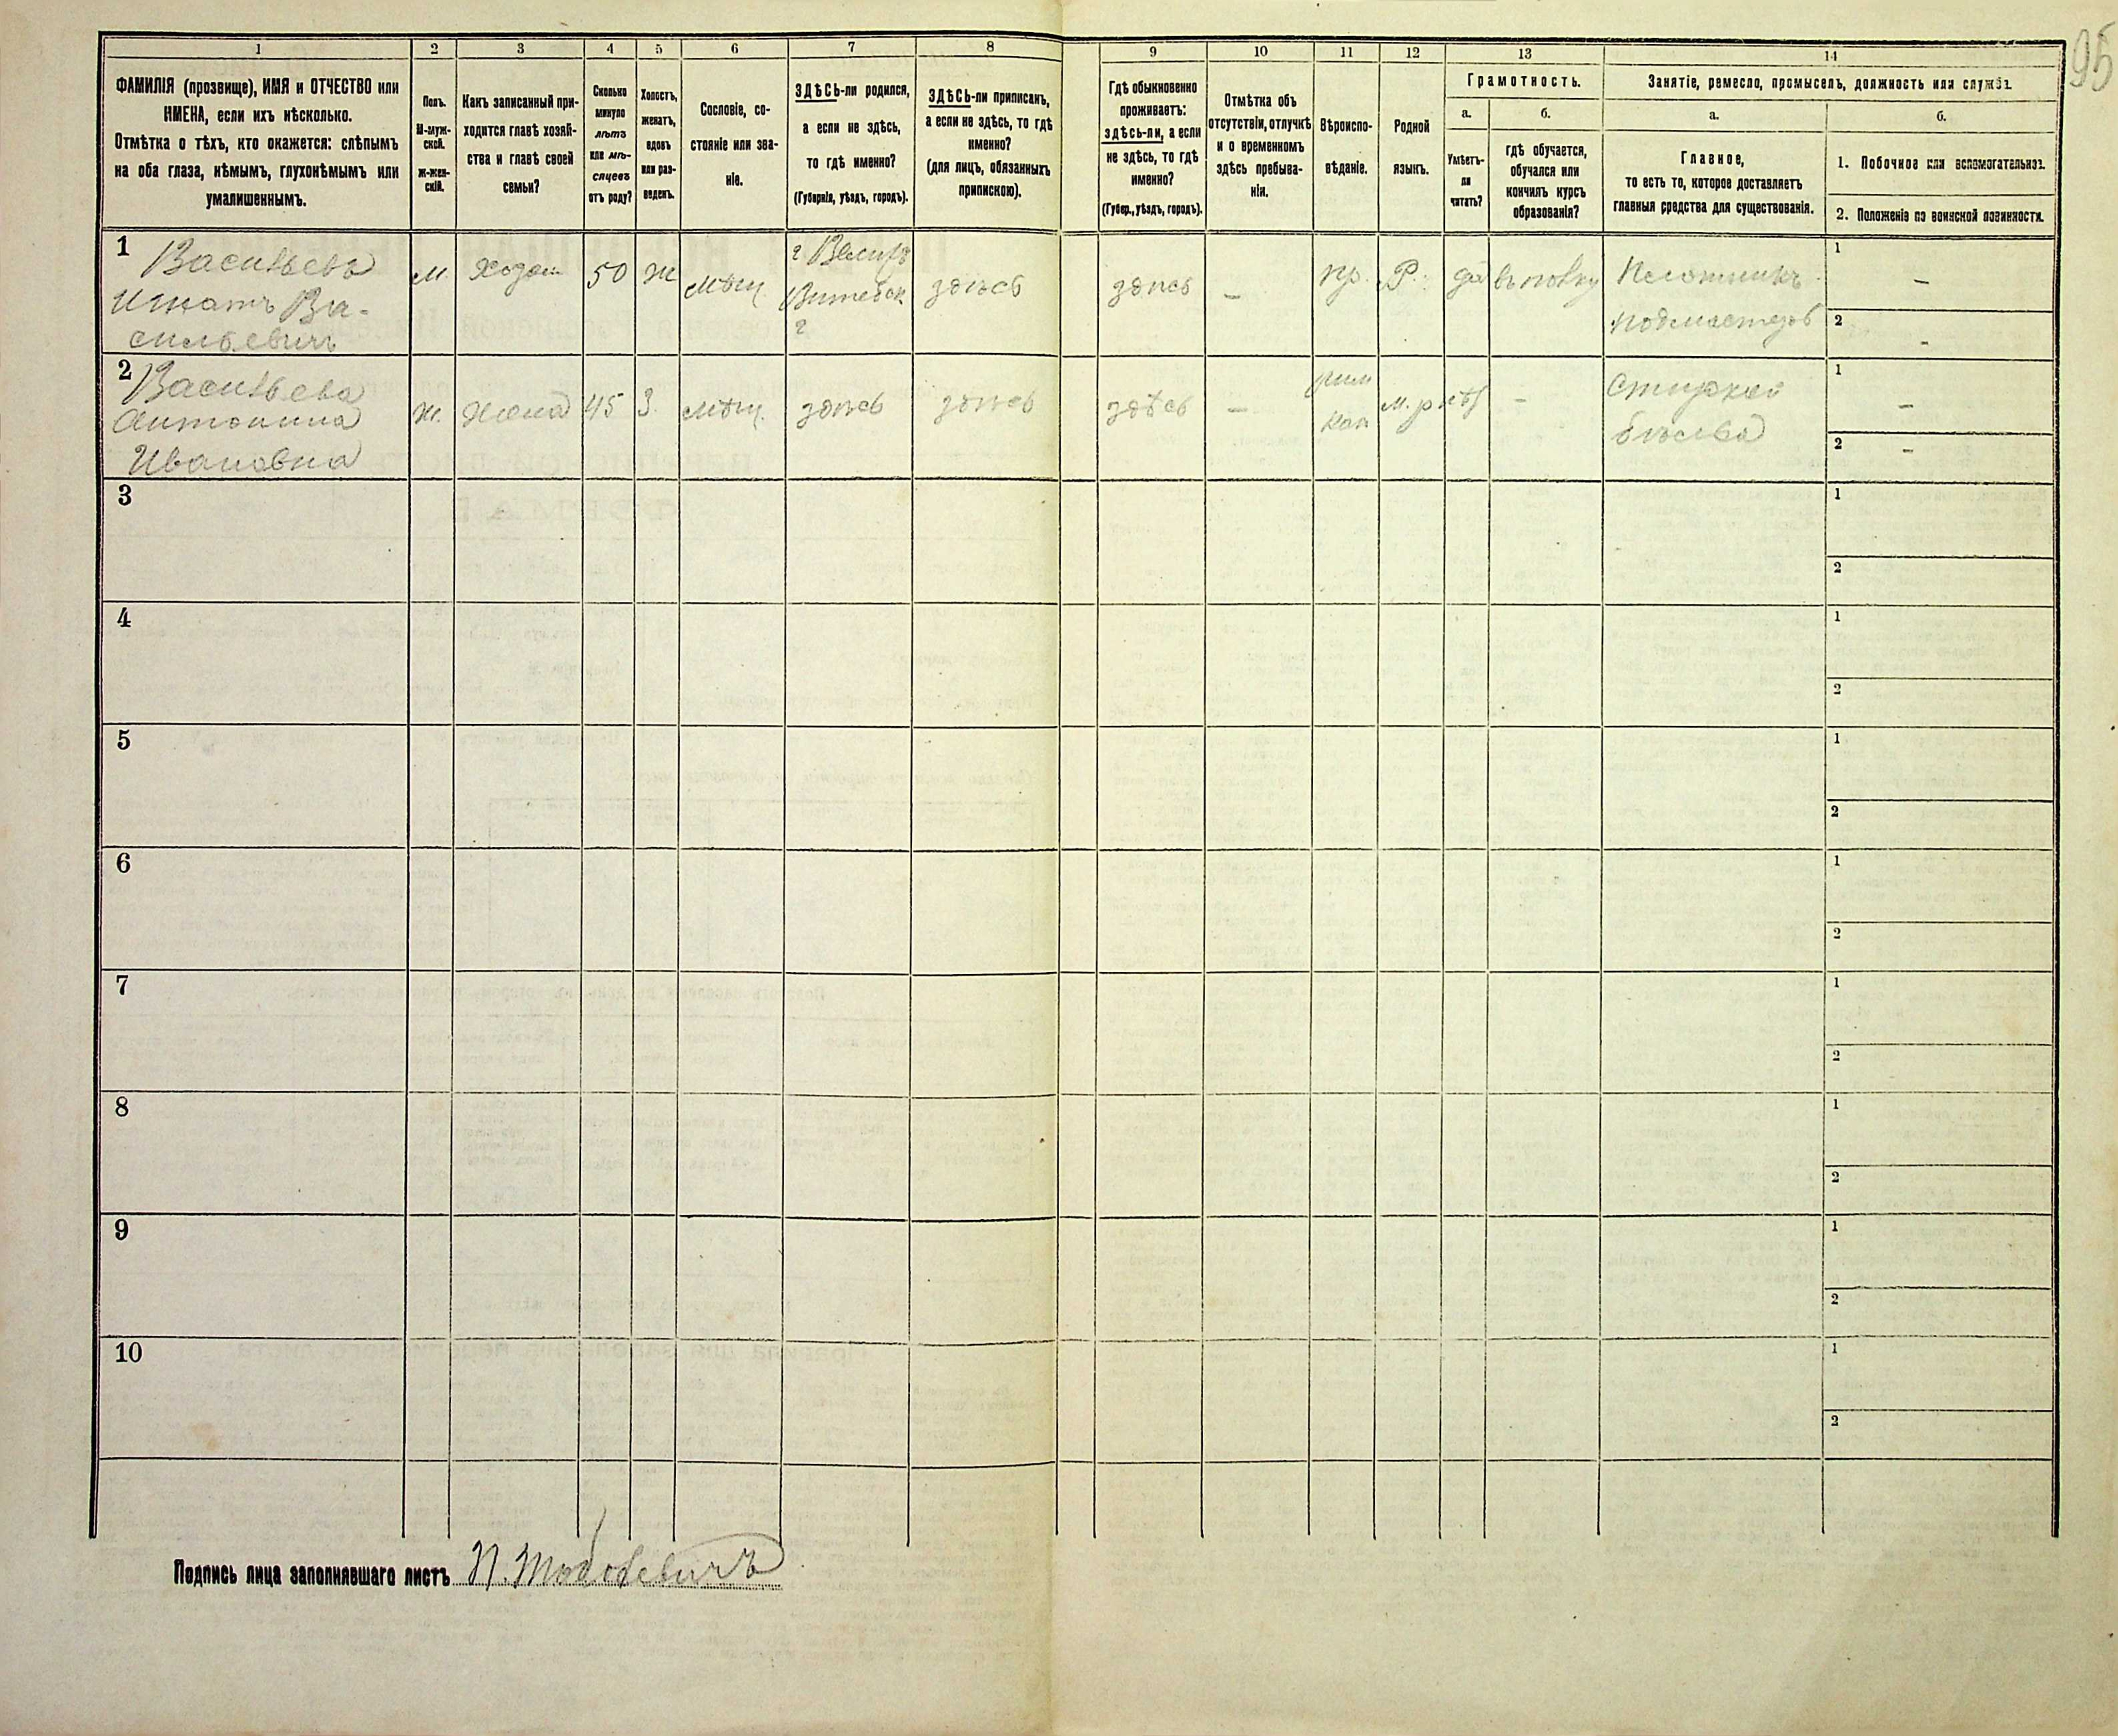 95
1 2 3 4 5 6 7 8 9 10 11 12 13 14
ФАМИЛІЯ (прозвище), ИМЯ и ОТЧЕСТВО или
ИМЕНА, если ихъ нѣсколько.
Отмѣтка о тѣхъ, кто окажется: слѣпымъ
на оба глаза, нѣмымъ, глухонѣмымъ или
умалишеннымъ.
Полъ.
М-муж-
ской.
ж-жен-
скій.
Какъ записанный при-
ходится главѣ хозяй-
ства и главѣ своей
семьи?
Сколько
минуло
лѣтъ
или мѣ-
сяцевъ
отъ роду?
Холостъ,
женатъ,
вдовъ
или раз-
веденъ.
Сословіе, со-
стояніе или зва-
ніе.
ЗДѢСЬ-ли родился,
а если не здѣсь,
то гдѣ именно?
(Губернія, уѣздъ, городъ).
ЗДѢСЬ-ли приписанъ,
а если не здѣсь, то гдѣ
именно?
(для лицъ, обязанныхъ
припискою).
Гдѣ обыкновенно
проживаетъ:
здѣсь-ли, а если
не здѣсь, то гдѣ
именно?
(Губер., уѣздъ, городъ).
Отмѣтка объ
отсутствіи, отлучкѣ
и о временномъ
здѣсь пребыва-
ніи.
Вѣроиспо-
вѣданіе.
Родной
языкъ.
Грамотность.
а.
Умѣетъ-
ли
читать?
б.
гдѣ обучается,
обучался или
кончилъ курсъ
образованія?
Занятіе, ремесло, промыселъ, должность или служба.
а.
Главное,
то есть то, которое доставляетъ
главныя средства для существованія.
б.
1. Побочное или вспомогательное.
2. Положеніе по воинской повинности.
1 Васильевъ
Игнатъ Ва-
сильевичъ
м. Хозяин 50 ж мѣщ.
г Велиж
Витебск
г
здѣсь здѣсь — пр. Р. да
Плотникъ
подмастерь
1 —
2 -
2 Васильева
Антонина
Ивановна
ж. Жена 45 З. мѣщ. здѣсь здѣсь здѣсь —
рим
кат
нѣт —
Стиркой
бѣлья
1 —
2 -
3 1
2
4 1
2
5 1
2
6 1
2
7 1
2
8 1
2
9 1
2
10 1
2
Подпись лица заполнявшаго листъ